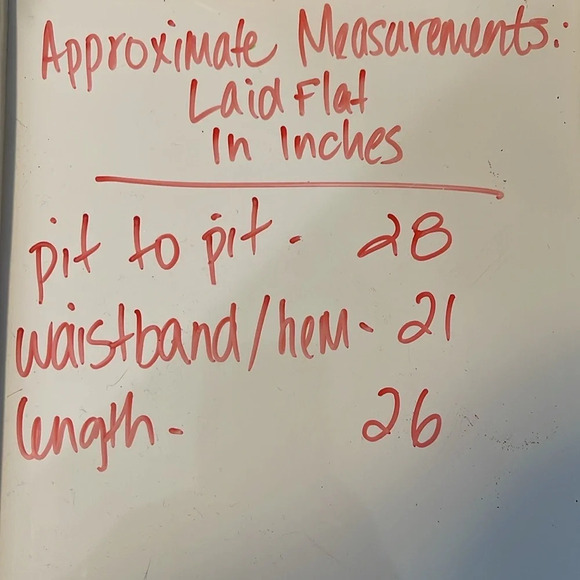 Approximate Measurements:
Laid Flat
In Inches
pit to pit. 28
waistband/hem- 21
length- 26